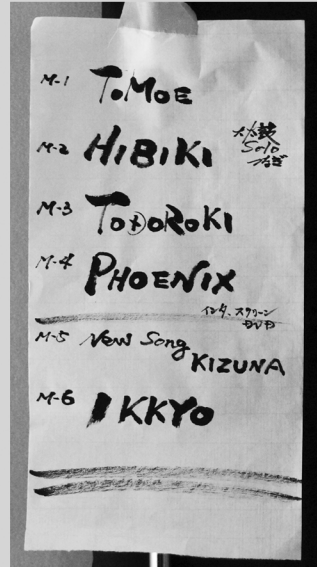 M-1 ToMoE
M-2 HIBIKI
大鼓
Solo
つなぎ
M-3 ToDoRoKI
M-4 PHOENIX
インタースクリーン
DVD
M-5 New Song
KIZUNA
M-6 IKKYo